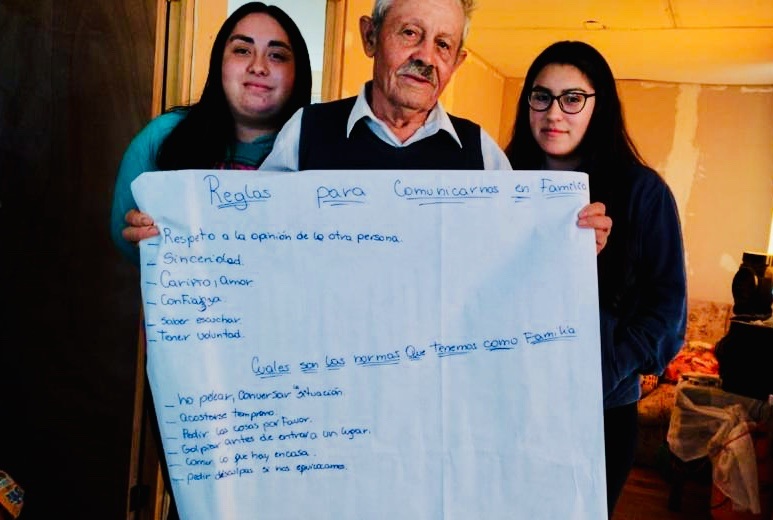 Reglas para Comunicarnos en Familia
_ Respeto a la opinión de la otra persona.
_ Sinceridad.
_ Cariño, amor
_ Confianza.
_ saber escuchar.
_ Tener voluntad.
Cuales son las normas Que tenemos como Familia
_ no pelear, conversar la situación
_ acostarse temprano.
_ Pedir las cosas por Favor.
_ Golpear antes de entrar a un lugar.
_ comer lo que hay en casa.
_ pedir disculpas si nos equivocamos.